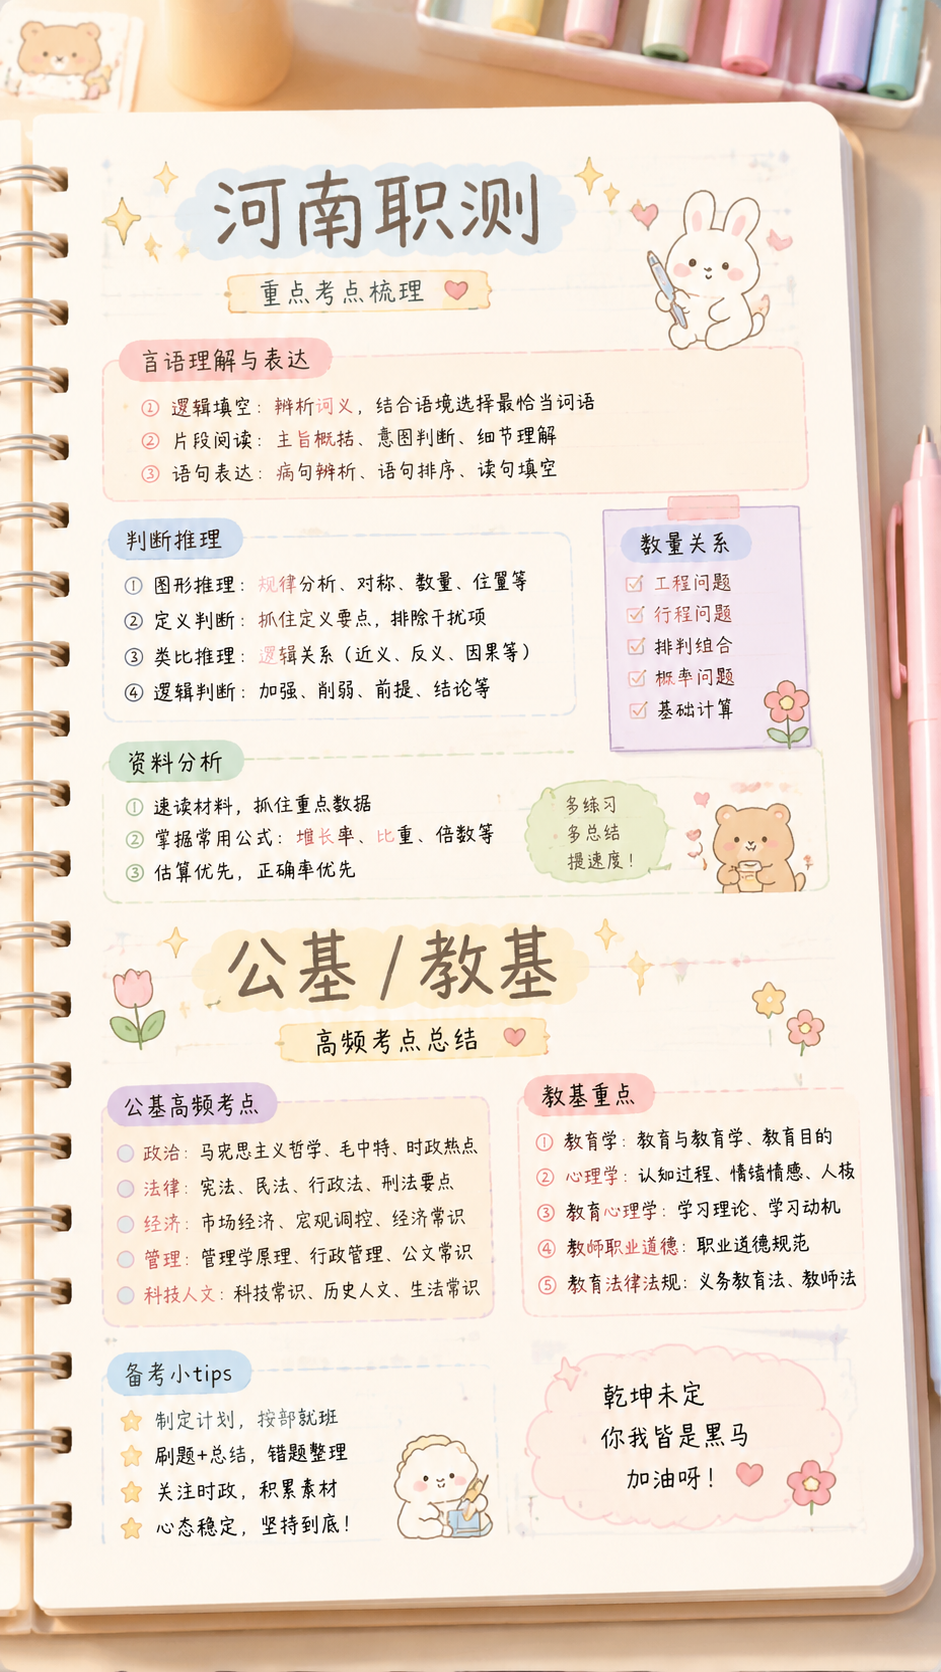 河南职测
重点考点梳理
言语理解与表达
① 逻辑填空：辨析词义，结合语境选择最恰当词语
② 片段阅读：主旨概括、意图判断、细节理解
③ 语句表达：病句辨析、语句排序、读句填空
判断推理
① 图形推理：规律分析、对称、数量、位置等
② 定义判断：抓住定义要点，排除干扰项
③ 类比推理：逻辑关系（近义、反义、因果等）
④ 逻辑判断：加强、削弱、前提、结论等
数量关系
工程问题
行程问题
排判组合
概率问题
基础计算
资料分析
① 速读材料，抓住重点数据
② 掌握常用公式：增长率、比重、倍数等
③ 估算优先，正确率优先
多练习
多总结
提速度！
公基/教基
高频考点总结
公基高频考点
政治：马克思主义哲学、毛中特、时政热点
法律：宪法、民法、行政法、刑法要点
经济：市场经济、宏观调控、经济常识
管理：管理学原理、行政管理、公文常识
科技人文：科技常识、历史人文、生活常识
教基重点
① 教育学：教育与教育学、教育目的
② 心理学：认知过程、情绪情感、人格
③ 教育心理学：学习理论、学习动机
④ 教师职业道德：职业道德规范
⑤ 教育法律法规：义务教育法、教师法
备考小tips
制定计划，按部就班
刷题+总结，错题整理
关注时政，积累素材
心态稳定，坚持到底！
乾坤未定
你我皆是黑马
加油呀！